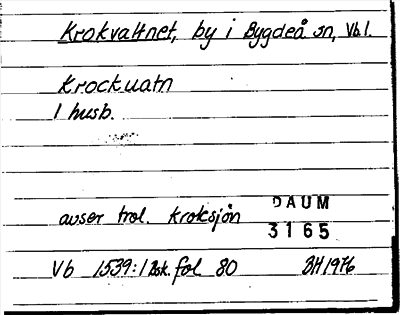 Krokvattnet, by i Bygdeå sn, Vb l.
Krockuatn
1 husb.
avser trol. Kroksjön
DAUM
3165
Vb 1539:1 Bsk. fol 80 BH 1976